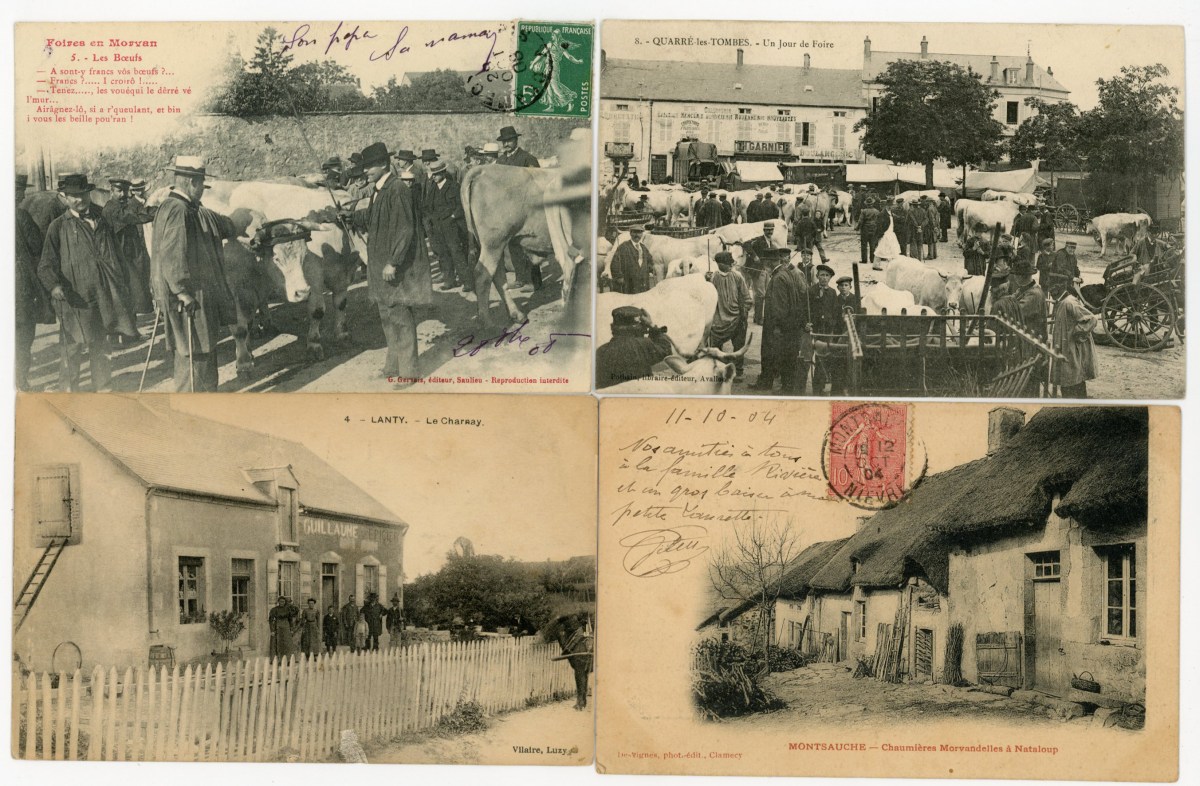 Foires en Morvan
5. - Les Bœufs
— A sont-y francs vòs bœufs ?...
— Francs ?..... I cro-rô !.....
— Tenez....., les vouéqui le dêrré vé
l'mur...
Airâgnez-lô, si a r'queulant, et bin
i vous les beille pou'ran !
Son papa Sa maman
RÉPUBLIQUE FRANÇAISE
POSTES
G. Gervais, éditeur, Saulieu - Reproduction interdite
8. - QUARRÉ-les-TOMBES. - Un Jour de Foire
GARNIER
libraire-éditeur, Avallon
4 - LANTY. - Le Charnay.
GUILLAUME
Vilaire, Luzy
11-10-04
Nos amitiés à tous
à la famille Rivière
et un gros baiser à ma
petite
10
12
04
NIÈVRE
MONTSAUCHE — Chaumières Morvandelles à Nataloup
De-Vignes, phot.-édit., Clamecy